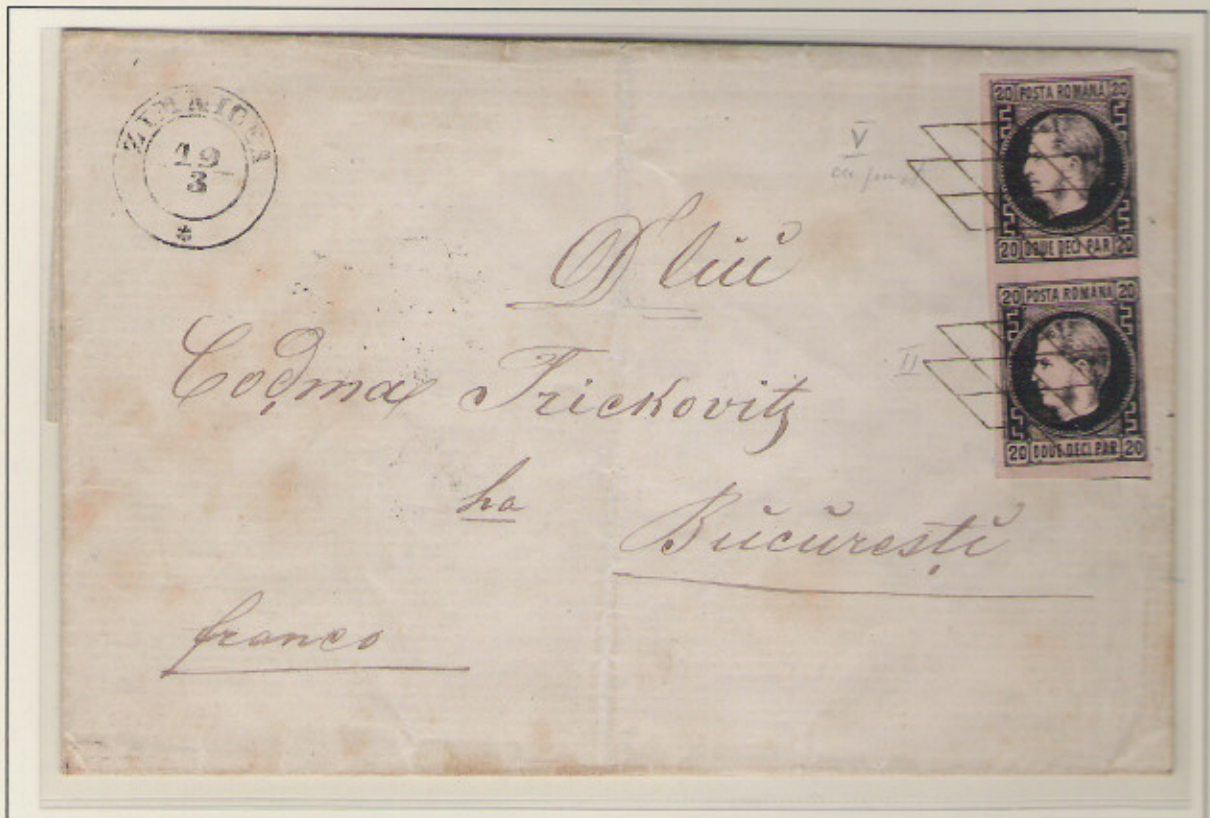 ZIMNICEA
19
3
20 POSTA ROMANĂ 20
20 DOUE DECI PAR 20
V
cu punct
20 POSTA ROMANĂ 20
20 DOUE DECI PAR 20
II
D lui
Coḑma Trickovitz
la
Bucuresti
franco